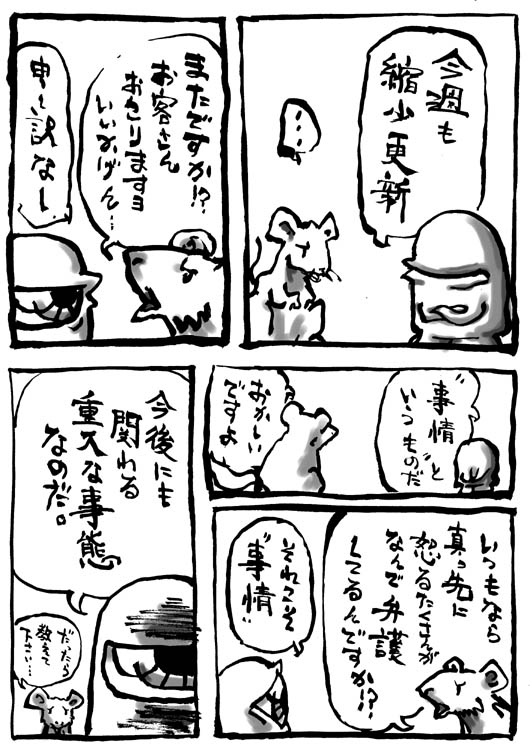 今週も
縮少更新
…
またですか!?
お客さん
おこりますヨ
いいかげん…
申し訳なし
“事情”と
いうものだ
おかしい
ですよ
いつもなら
真っ先に
怒るたくさんが
なんで弁護
してるんですか!?
それこそ
“事情”
今後にも
関わる
重大な事態
なのだ。
だったら
教えて
下さい…